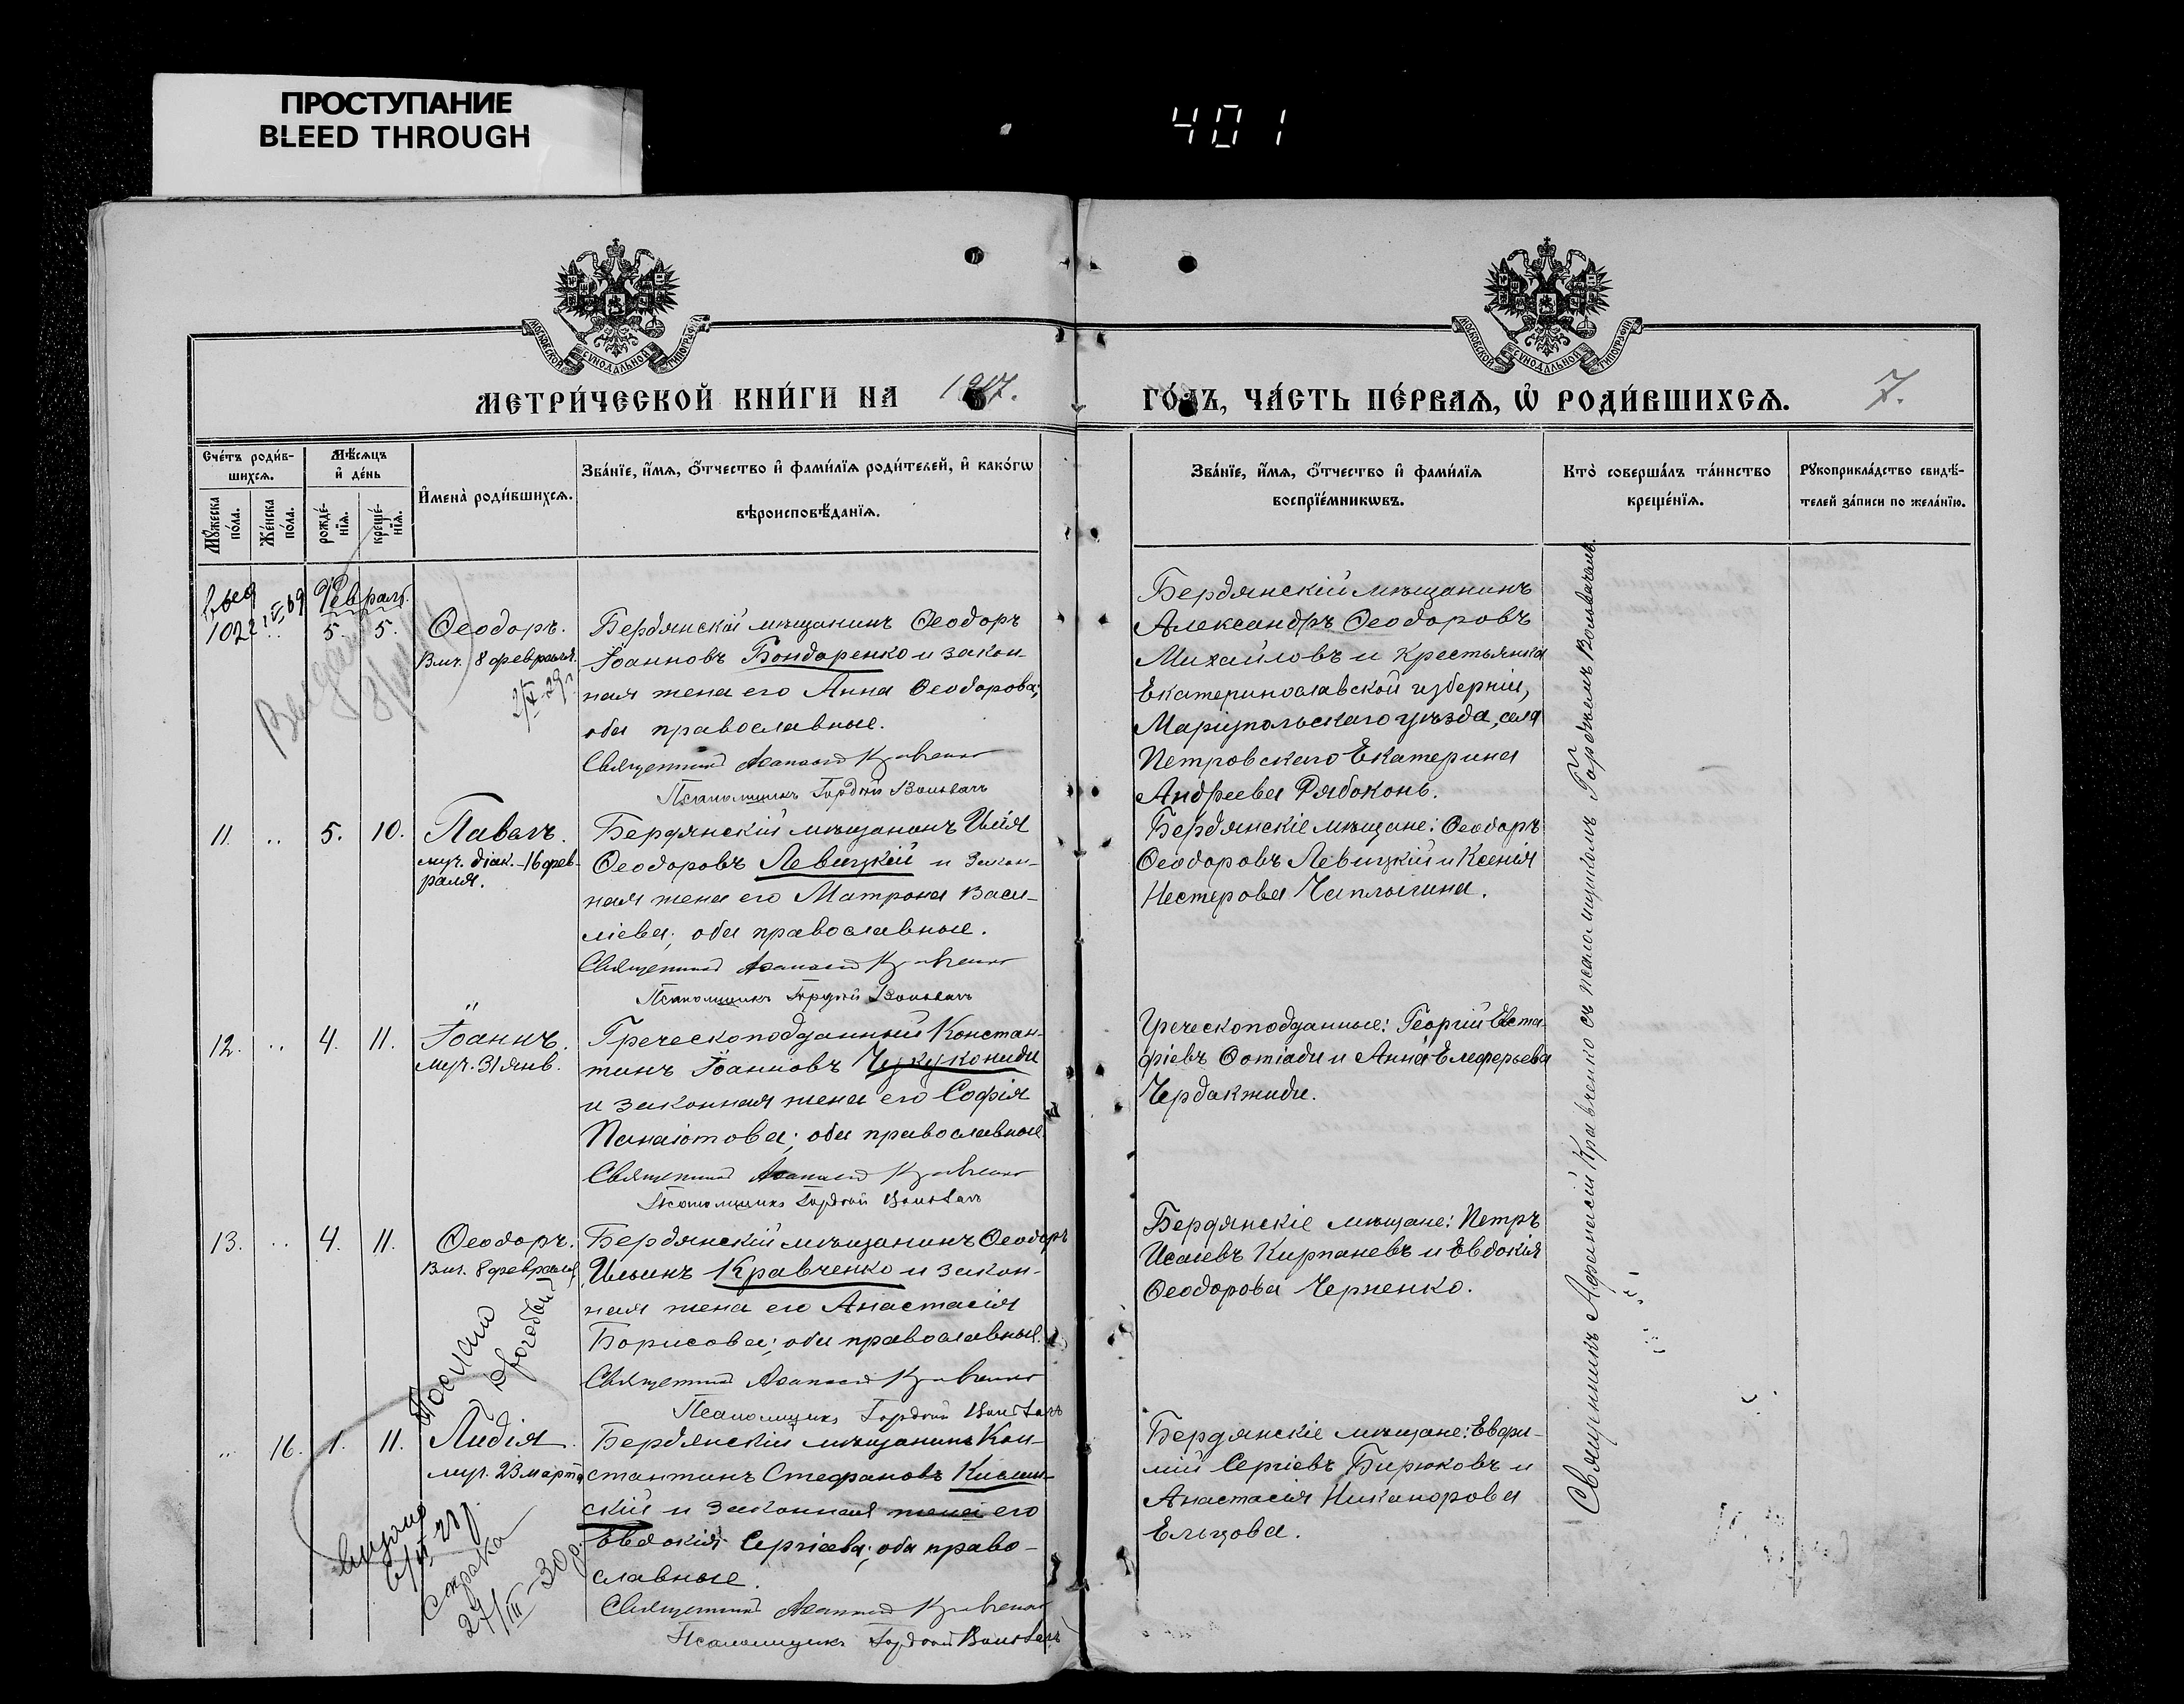 ПРОСТУПАНИЕ
BLEED THROUGH
401
МОСКОВСКОЙ СѴНОДАЛЬНОЙ ТИПОГРАФІИ
МОСКОВСКОЙ СѴНОДАЛЬНОЙ ТИПОГРАФІИ
МЕТРИ́ЧЕСКОЙ КНИ́ГИ НА 1917.
ГО́ДЪ, ЧА́СТЬ ПЕ́РВАЯ, Ѡ РОДИ́ВШИХСЯ. 7.
Сче́тъ роди́в-
шихся.
Му́жеска по́ла.
Же́нска по́ла.
Мѣ́сяцъ
и де́нь
рожде́-нїя.
креще́-нїя.
И҆мена̀ роди́вшихся.
Зва́нїе, и҆́мя, ѻ҆́тчество и҆ фами́лїя роди́телей, и҆ како́гѡ
вѣроисповѣ́данїя.
Зва́нїе, и҆́мя, ѻ҆́тчество и҆ фами́лїя
воспрїе́мникѡвъ.
Кто̀ соверша́лъ та́инство
креще́нїя.
Рꙋкоприкла́дство свидѣ́-
телей за́писи по жела́нїю.
Февраль.
10 5. 5. Ѳеодоръ.
Вмч. 8 февраля.
Бердянскій мѣщанинъ Ѳеодоръ
Іоанновъ Бондаренко и закон-
ная жена его Анна Ѳеодорова;
оба православные.
Священникъ Аѳанасій Кравченко
Псаломщикъ Гордѣй Воловачъ
Бердянскій мѣщанинъ
Александръ Ѳеодоровъ
Михайловъ и крестьянка
Екатеринославской губерніи,
Маріупольскаго уѣзда, села
Петровскаго Екатерина
Андреева Рябоконь.
11. .. 5. 10. Павелъ.
муч. діак. - 16 фев-
раля.
Бердянскій мѣщанинъ Илія
Ѳеодоровъ Левицкій и закон-
ная жена его Матрона Васи-
ліева; оба православные.
Священникъ Аѳанасій Кравченко
Псаломщикъ Гордѣй Воловачъ
Бердянскіе мѣщане: Ѳеодоръ
Ѳеодоровъ Левицкій и Ксенія
Нестерова Чаплыгина.
12. .. 4. 11. Іоаннъ.
муч. 31 янв.
Греческоподданный Констан-
тинъ Іоанновъ Чукукониди
и законная жена его Софія
Панаіотова; оба православные.
Священникъ Аѳанасій Кравченко
Псаломщикъ Гордѣй Воловачъ
Греческоподданные: Георгій Евста-
фіевъ Фотіади и Анна Елеферьева
Чердакжиди.
13. .. 4. 11. Ѳеодоръ.
Вмч. 8 февраля.
Бердянскій мѣщанинъ Ѳеодоръ
Ильинъ Кравченко и закон-
ная жена его Анастасія
Борисова; оба православные.
Священникъ Аѳанасій Кравченко
Псаломщикъ Гордѣй Воловачъ
Бердянскіе мѣщане: Петръ
Исаіевъ Кирпаневъ и Евдокія
Ѳеодорова Черненко.
.. 16. 1. 11. Лидія.
муч. 23 марта
Бердянскій мѣщанинъ Кон-
стантинъ Стефановъ
скій и законная жена его
Евдокія Сергіева; оба право-
славные.
Священникъ Аѳанасій Кравченко
Псаломщикъ Гордѣй Воловачъ
Бердянскіе мѣщане: Евфи-
мій Сергіевъ Бирюковъ и
Анастасія Никанорова
Ельцова.
Священникъ Афанасій Кравченко съ псаломщикомъ Гордѣемъ Воловачемъ.
Послано
справка
27/III-30 г.